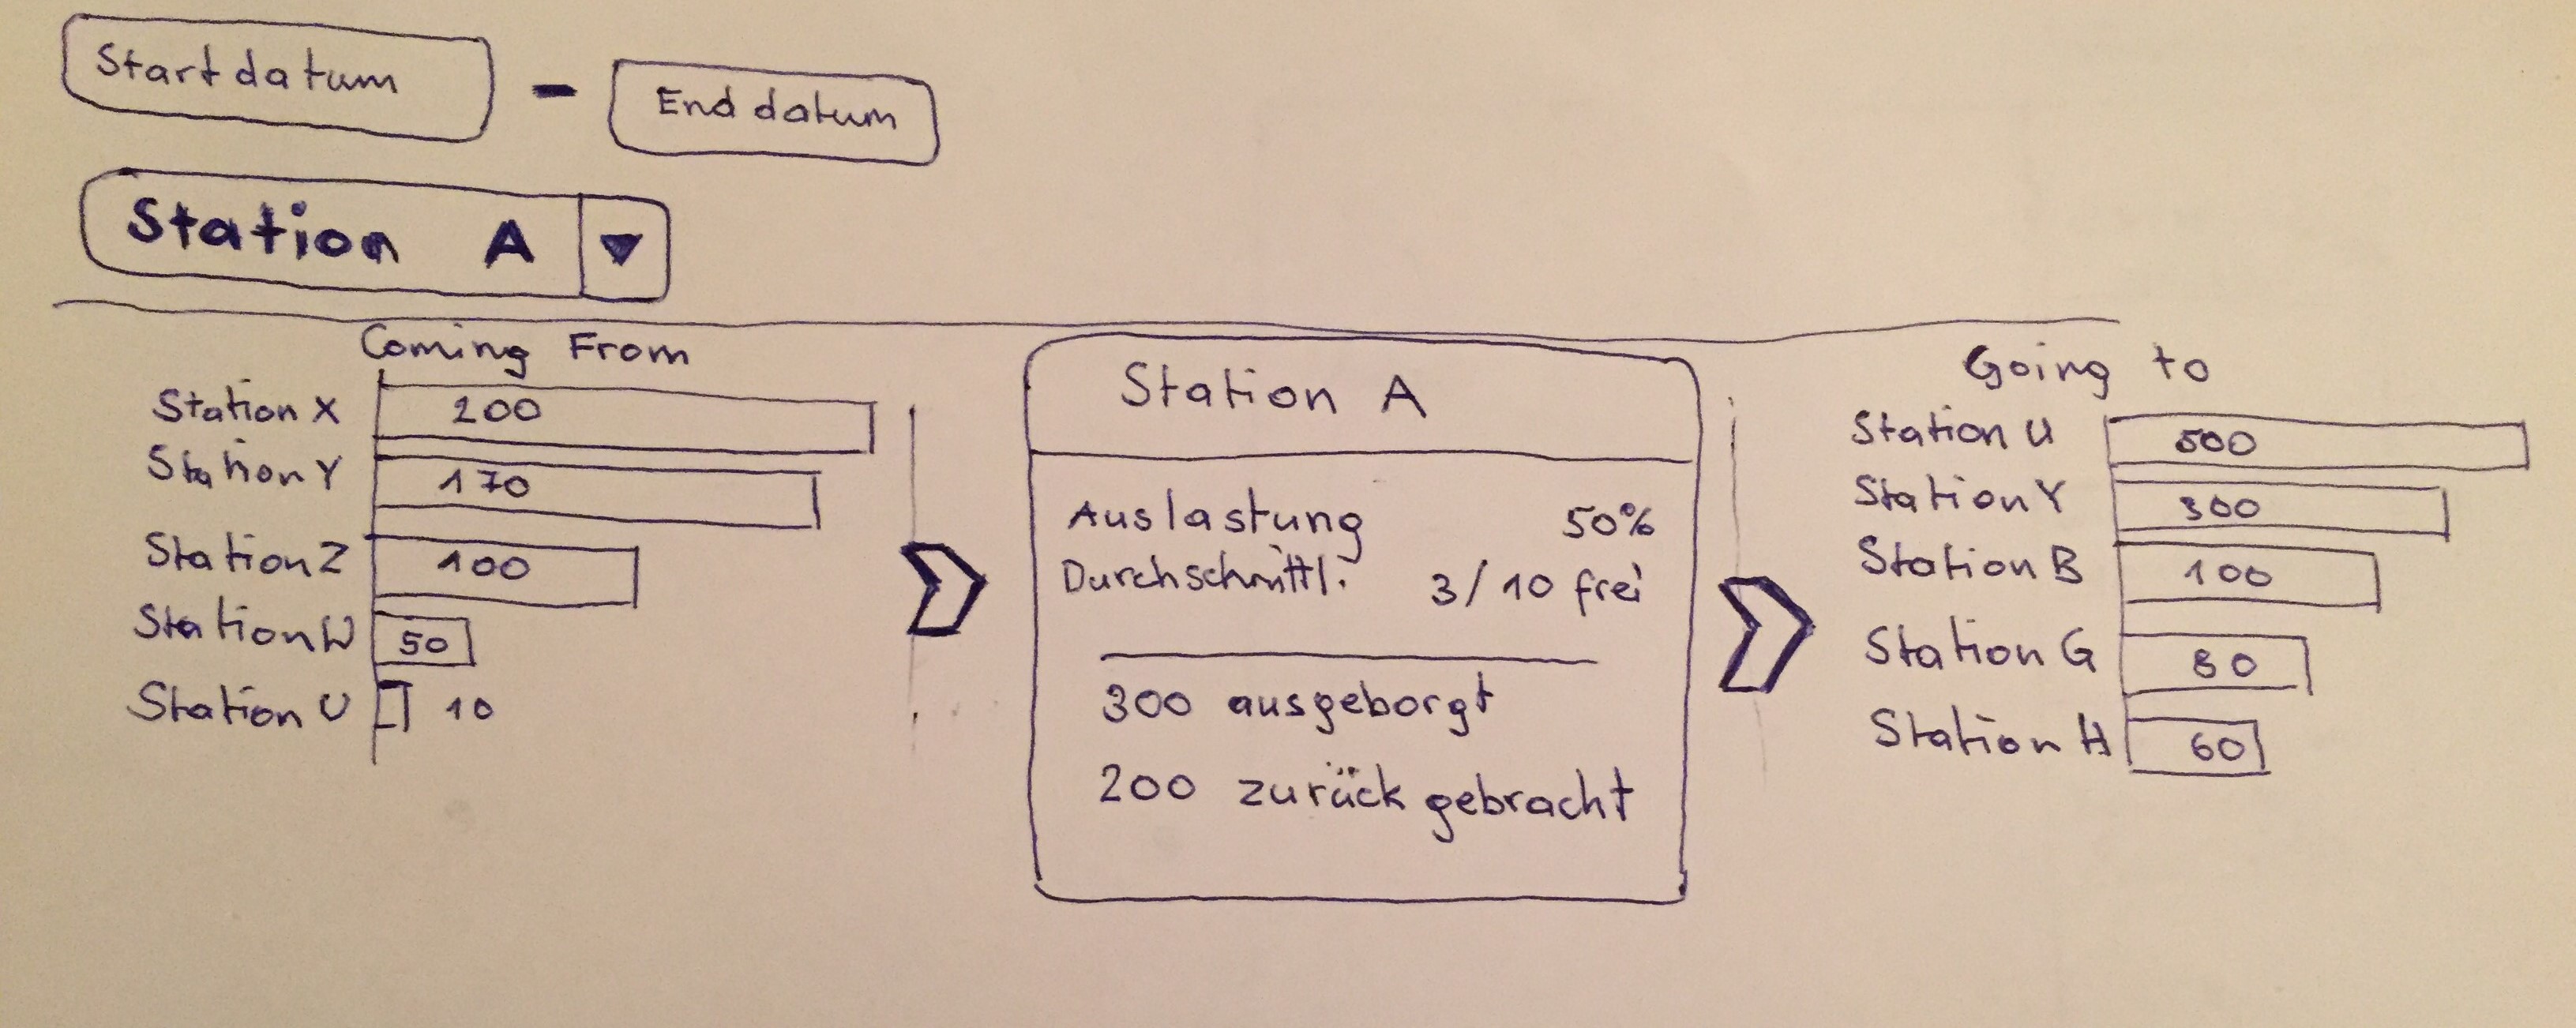 Startdatum - Enddatum
Station A
Coming From
Station X 200
Station Y 170
Station Z 100
Station W 50
Station U 10
Station A
Auslastung 50%
Durchschnittl. 3/10 frei
300 ausgeborgt
200 zurück gebracht
Going to
Station U 500
Station Y 300
Station B 100
Station G 80
Station H 60